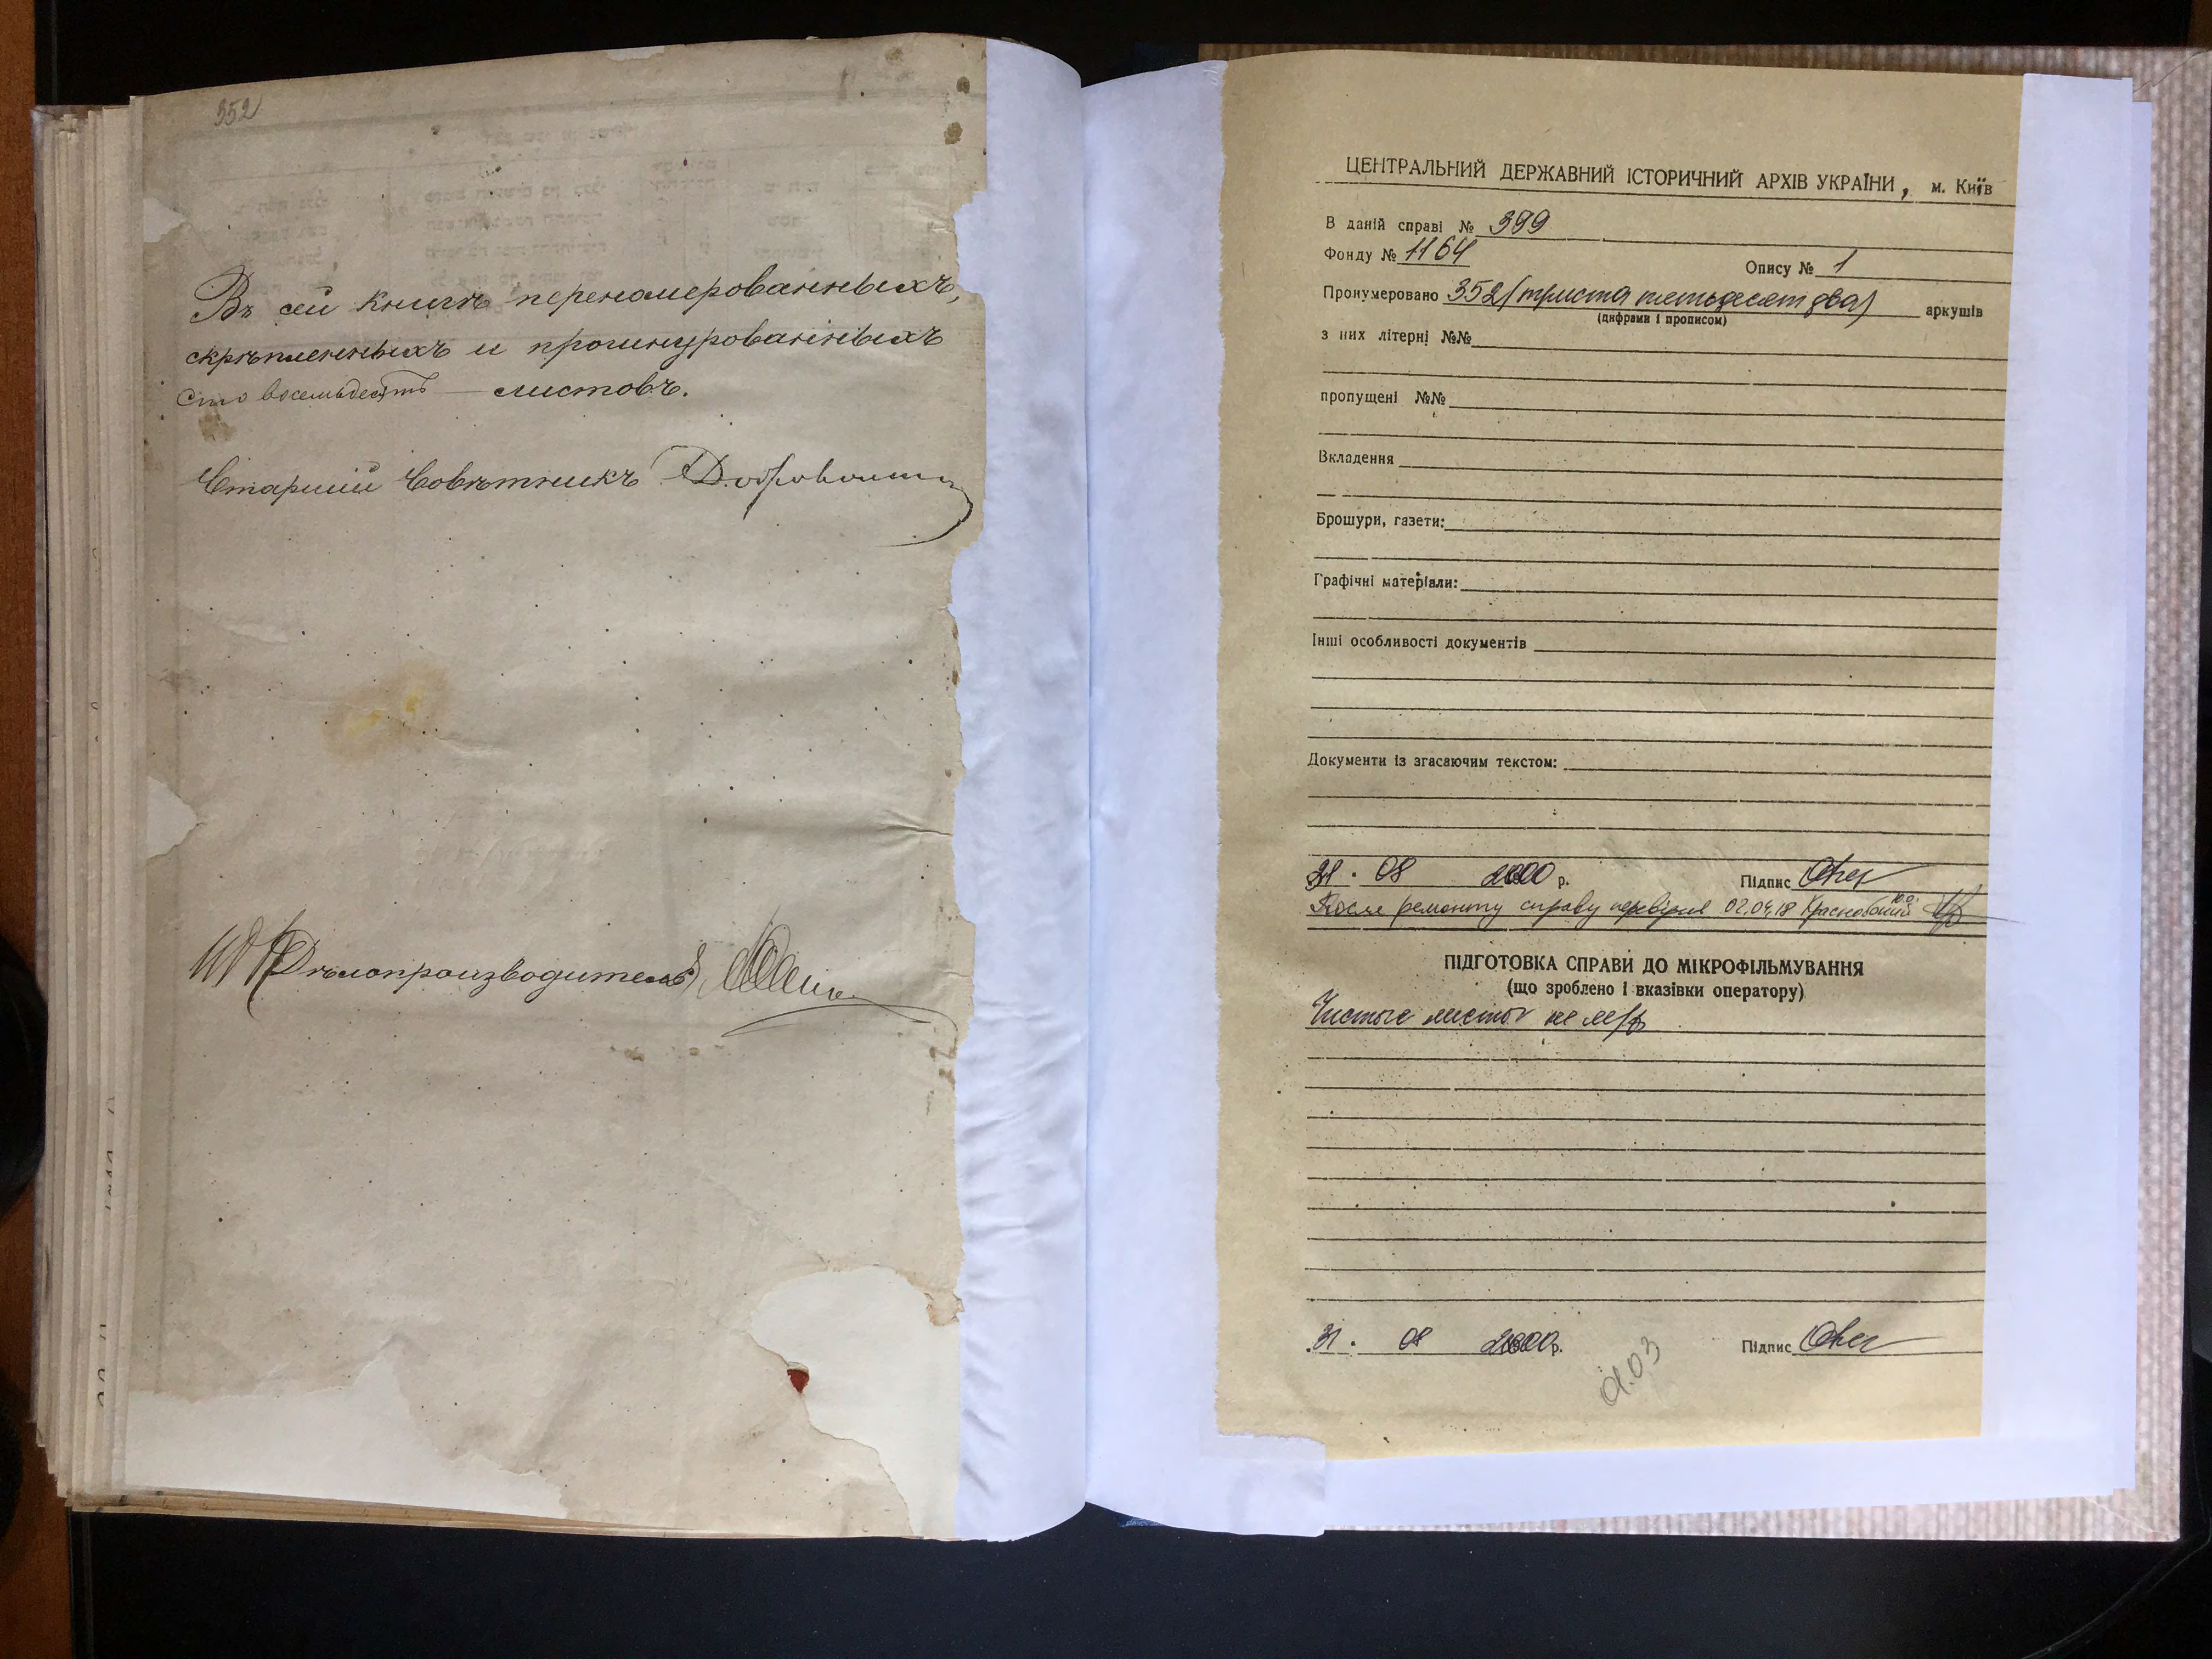 352
Въ сей книгѣ перенамерованныхъ,
скрѣпленныхъ и прошнурованныхъ
сто восемьдесятъ — листовъ.
Старшій Совѣтникъ
Дѣлопроизводитель
ЦЕНТРАЛЬНИЙ ДЕРЖАВНИЙ ІСТОРИЧНИЙ АРХІВ УКРАЇНИ, м. Київ
В даній справі № 399
Фонду № 1164 Опису № 1
Пронумеровано 352 (триста пятьдесят два) аркушів
(цифрами і прописом)
з них літерні №№
пропущені №№
Вкладення
Брошури, газети:
Графічні матеріали:
Інші особливості документів
Документи із згасаючим текстом:
31. 08 2000 р. Підпис
После ремонту справу 02.04.18
ПІДГОТОВКА СПРАВИ ДО МІКРОФІЛЬМУВАННЯ
(що зроблено і вказівки оператору)
Чистые листы не м/ф
31. 08 2000 р. Підпис
01.03